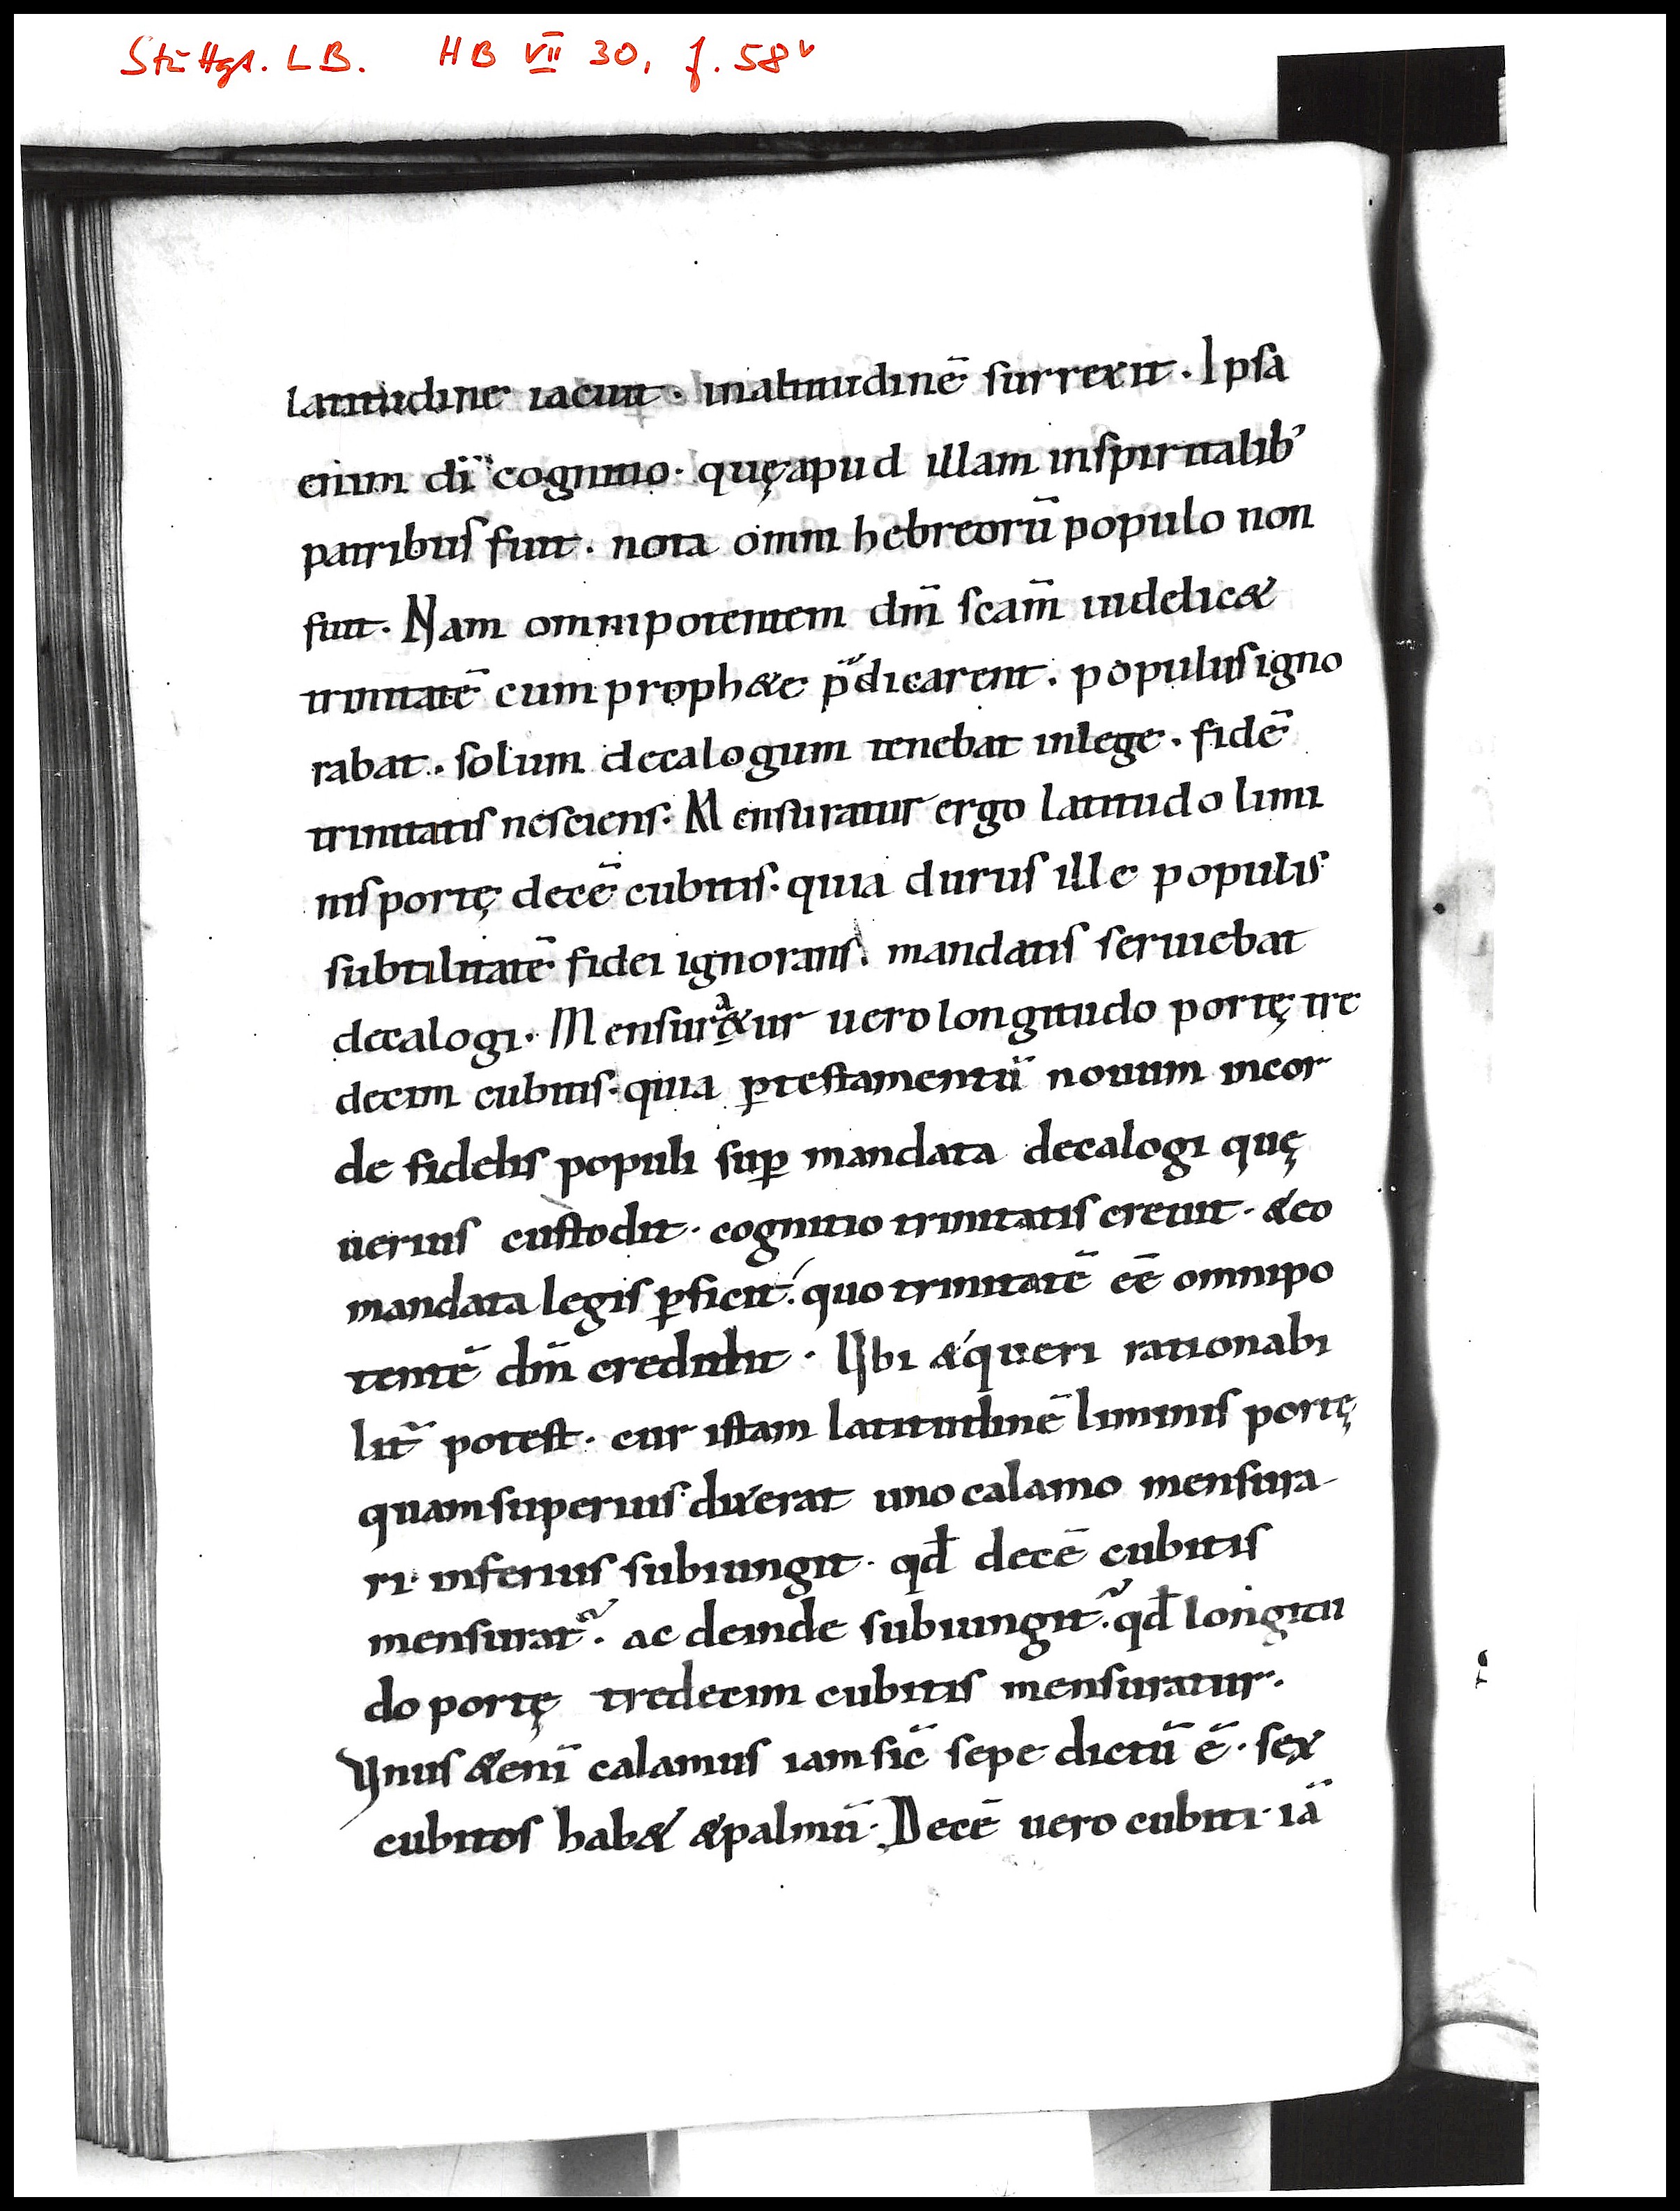 Stuttgt. LB. HB VII 30, f. 58v
latitudine iacuit · inaltitudinē surrexit · Ipsa
enim dī cognitio · quęapud illam inspiritalib'
patribus fuit · nota omni hebreorū populo non
fuit · Nam omnipotentem dm̄ scam̄ uidelic&
trinitatē cum proph&e p̄dicarent · populus igno
rabat · solum decalogum tenebat inlege · fidē
trinitatis nesciens · Mensuratur ergo latitudo limi
nis portę decē cubitis · quia durus ille populus
subtilitatē fidei ignorans · mandatis seruiebat
decalogi · Mensur&ur uero longitudo portę tre
decim cubitis · quia ꝑtestamentū nouum incor
de fidelis populi suꝑ mandata decalogi quę
uerius custodit · cognitio trinitatis creuit · &eo
mandata legis ꝑficit · quo trinitatē eē omnipo
tentē dm̄ credidit · Ubi &queri rationabi
lit̄ potest · cur istam latitudinē liminis portę
quamsuperius dixerat uno calamo mensura
ri · inferius subiungit · qd̄ decē cubitis
mensurat̄ · ac deinde subiungit · qd̄ longitu
do portę tredecim cubitis mensuratur ·
Unus &enī calamus iam sic̄ sepe dictū ē · sex
cubitos hab& &palmū · Decē uero cubiti · iā